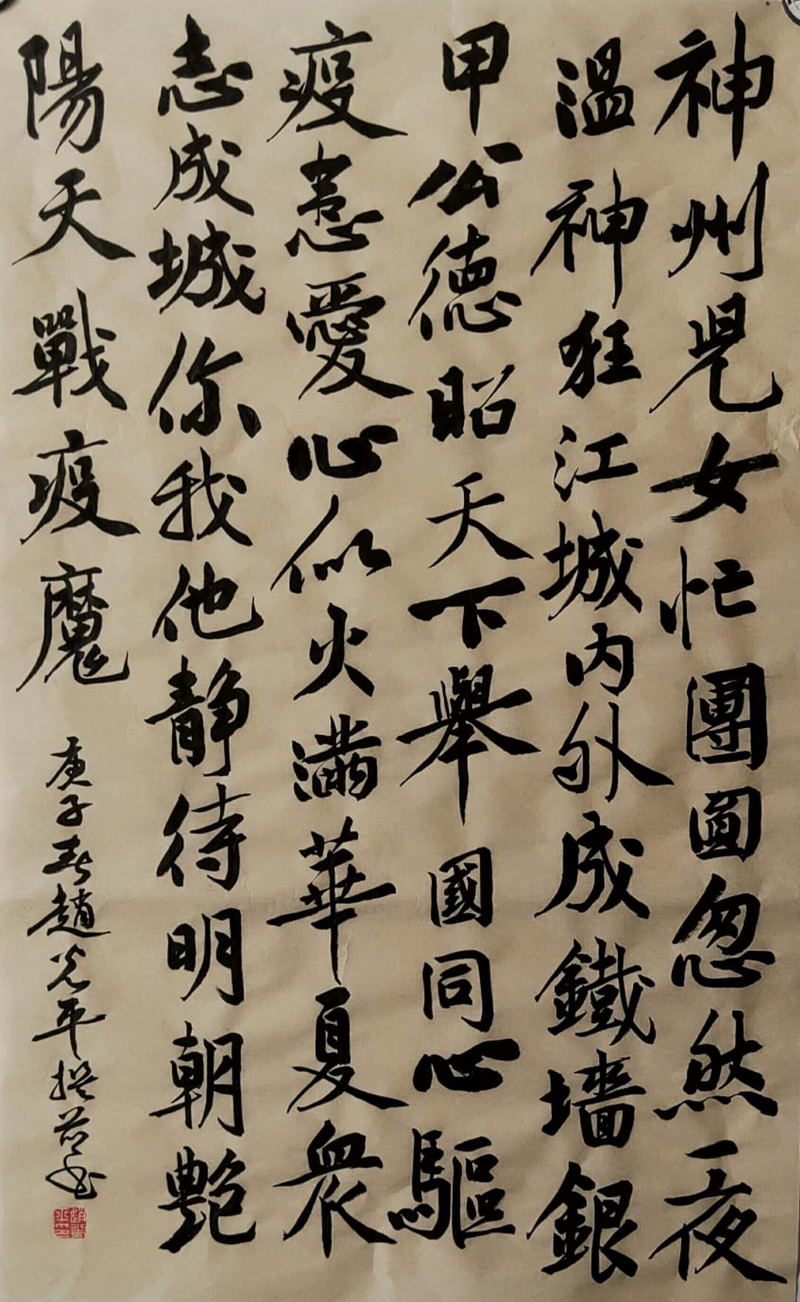 神州兒女忙團圓忽然一夜
温神狂江城內外成鐵墻銀
甲公德昭天下舉國同心驅
疫恙愛心似火滿華夏衆
志成城你我他靜待明朝艷
陽天戰疫魔
庚子春趙光平撰并书